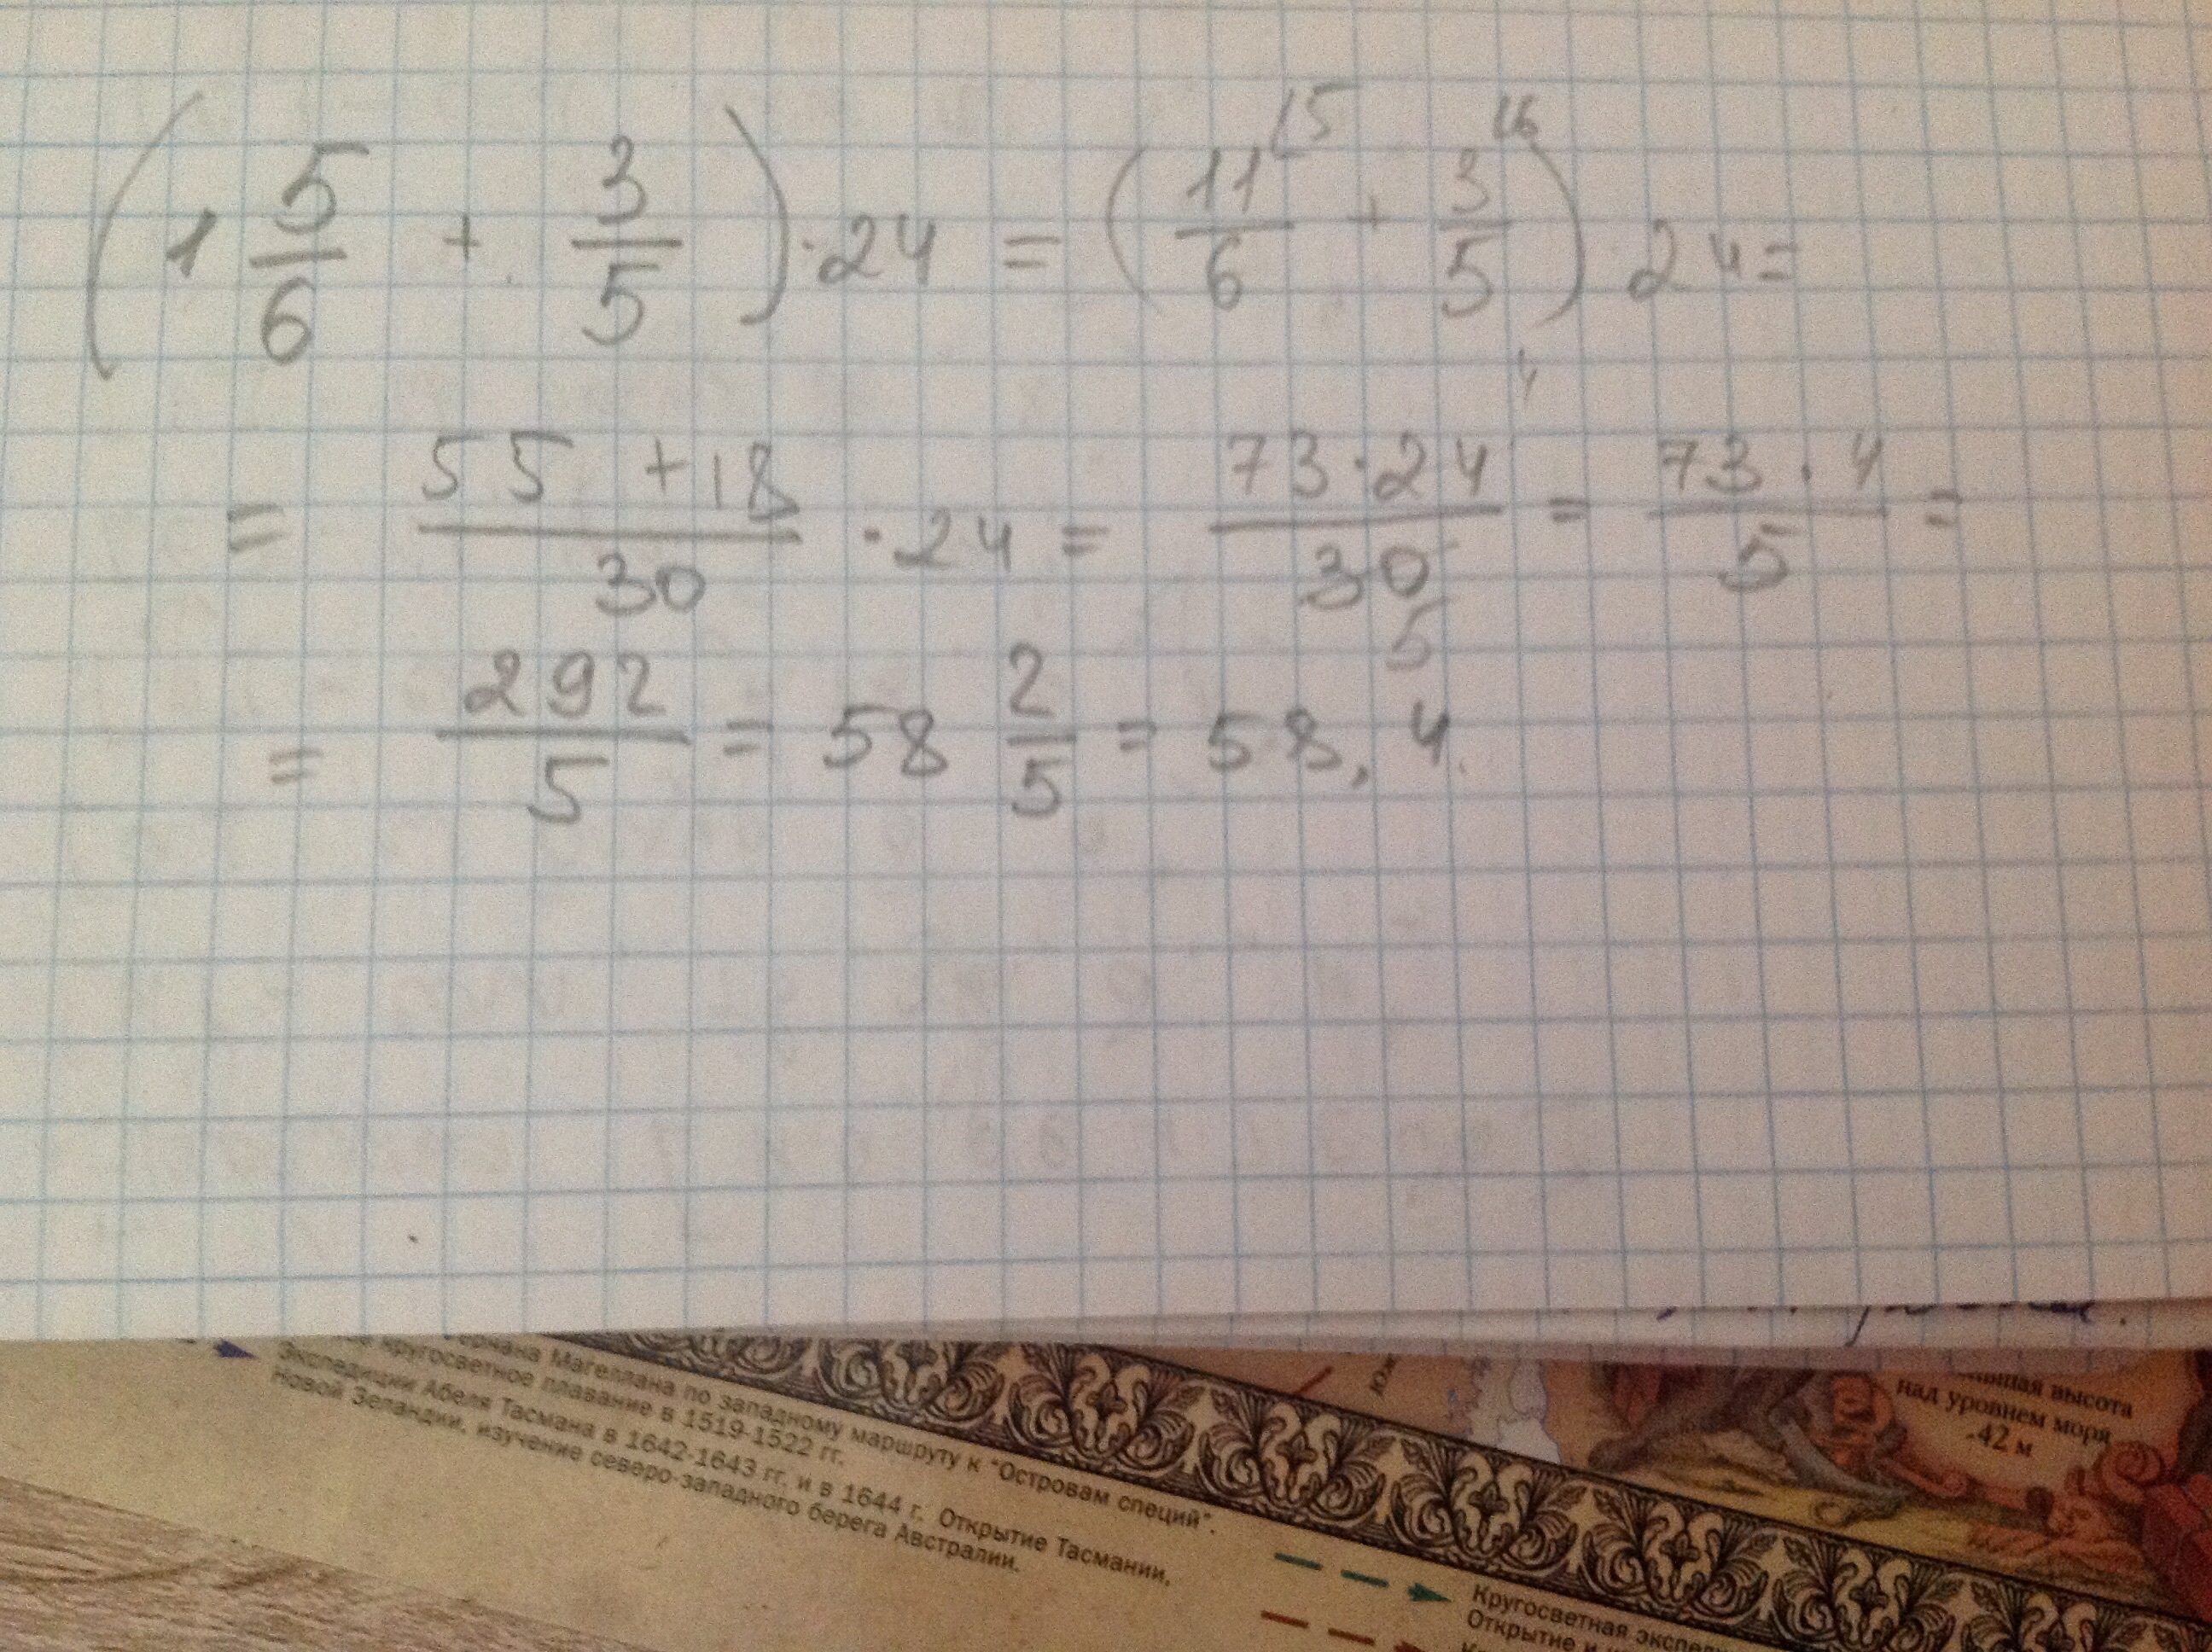 (1 5/6 + 3/5) · 24 = (11/6 (5 + 3/5 (6) · 24 =
= (55 + 18)/30 · 24 = (73 · 24 4)/(30 5) = (73 · 4)/5 =
= 292/5 = 58 2/5 = 58,4.
Магеллана по западному маршруту к "Островам специй".
кругосветное плавание в 1519-1522 гг.
Экспедиции Абеля Тасмана в 1642-1643 гг. и в 1644 г. Открытие Тасмании,
Новой Зеландии, изучение северо-западного берега Австралии.
высота
над уровнем моря
-42 м
Кругосветная
Открытие и